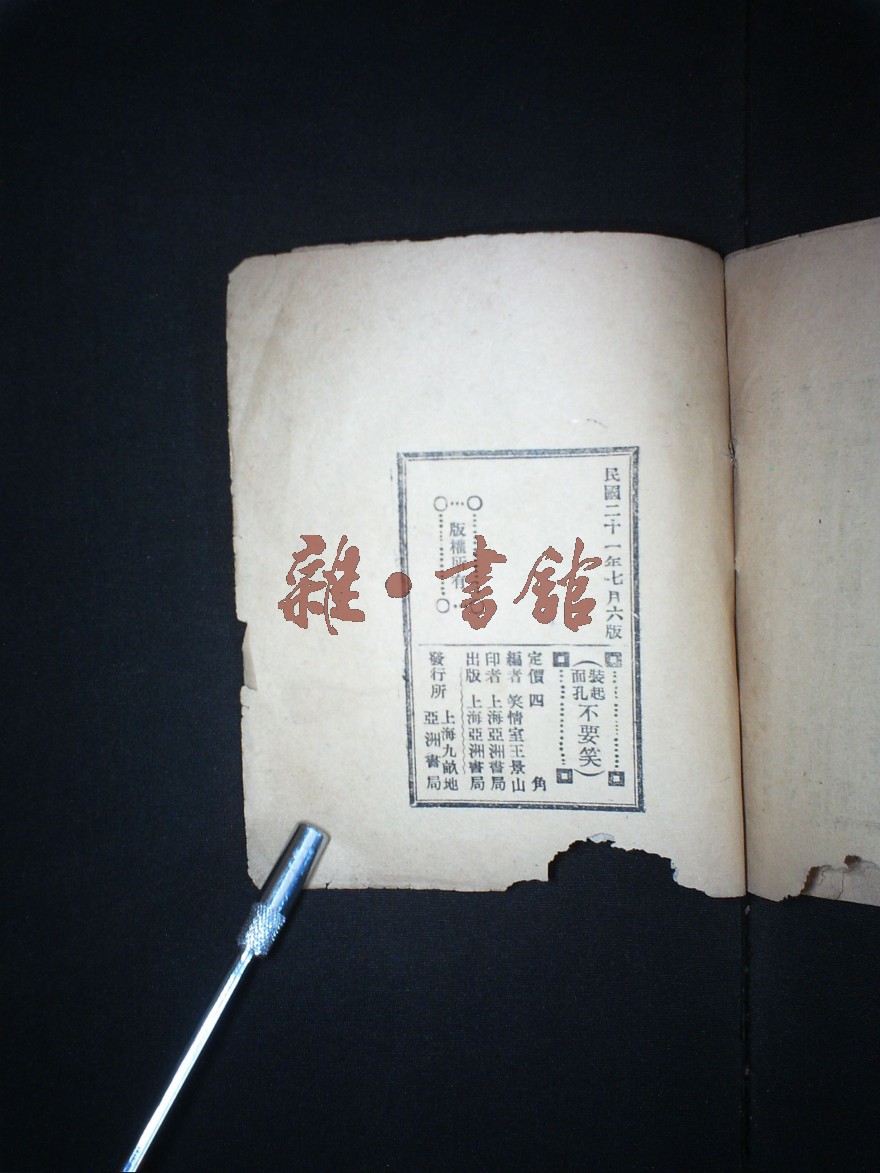 民國二十一年七月六版
版權所有
(裝起面孔不要笑)
定價四角
編者 笑情室王景山
印者 上海亞洲書局
出版 上海亞洲書局
發行所 上海九畝地
亞洲書局
雜·書館